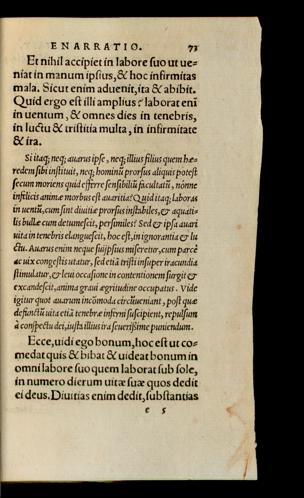 ENARRATIO. 73
Et nihil accipiet in labore suo ut ue-
niat in manum ipsius, & hoc infirmitas
mala. Sicut enim aduenit, ita & abibit.
Quid ergo est illi amplius? laborat enī
in uentum, & omnes dies in tenebris,
in luctu & tristitia multa, in infirmitate
& ira.
Si itaq; neq; auarus ipse, neq; illius filius quem hæ-
redem sibi instituit, neq; hominū prorsus aliquis potest
secum moriens quid efferre sensibiliū facultatū, nónne
infelicis animæ morbus est auaritia? Quid itaq; laboras
in uentū, cum sint diuitiæ prorsus instabiles, & aquati-
lis bullæ cum detumescit, persimiles? Sed & ipsa auari
uita in tenebris elanguescit, hoc est, in ignorantia & lu
ctu. Auarus enim neque suijpsius miseretur, cum parcè
ac uix congestis utatur, sed etiā tristi insuper iracundia
stimulatur, & leui occasione in contentionem surgit &
excandescit, anima graui ægritudine occupatus. Vide
igitur quot auarum incōmoda circūueniant, post quæ
defunctū uita etiā tenebræ inferni suscipient, repulsum
à conspectu dei, iusta illius ira seuerissime puniendum.
Ecce, uidi ego bonum, hoc est ut co-
medat quis & bibat & uideat bonum in
omni labore suo quem laborat sub sole,
in numero dierum uitæ suæ quos dedit
ei deus. Diuitias enim dedit, substantias
e 5